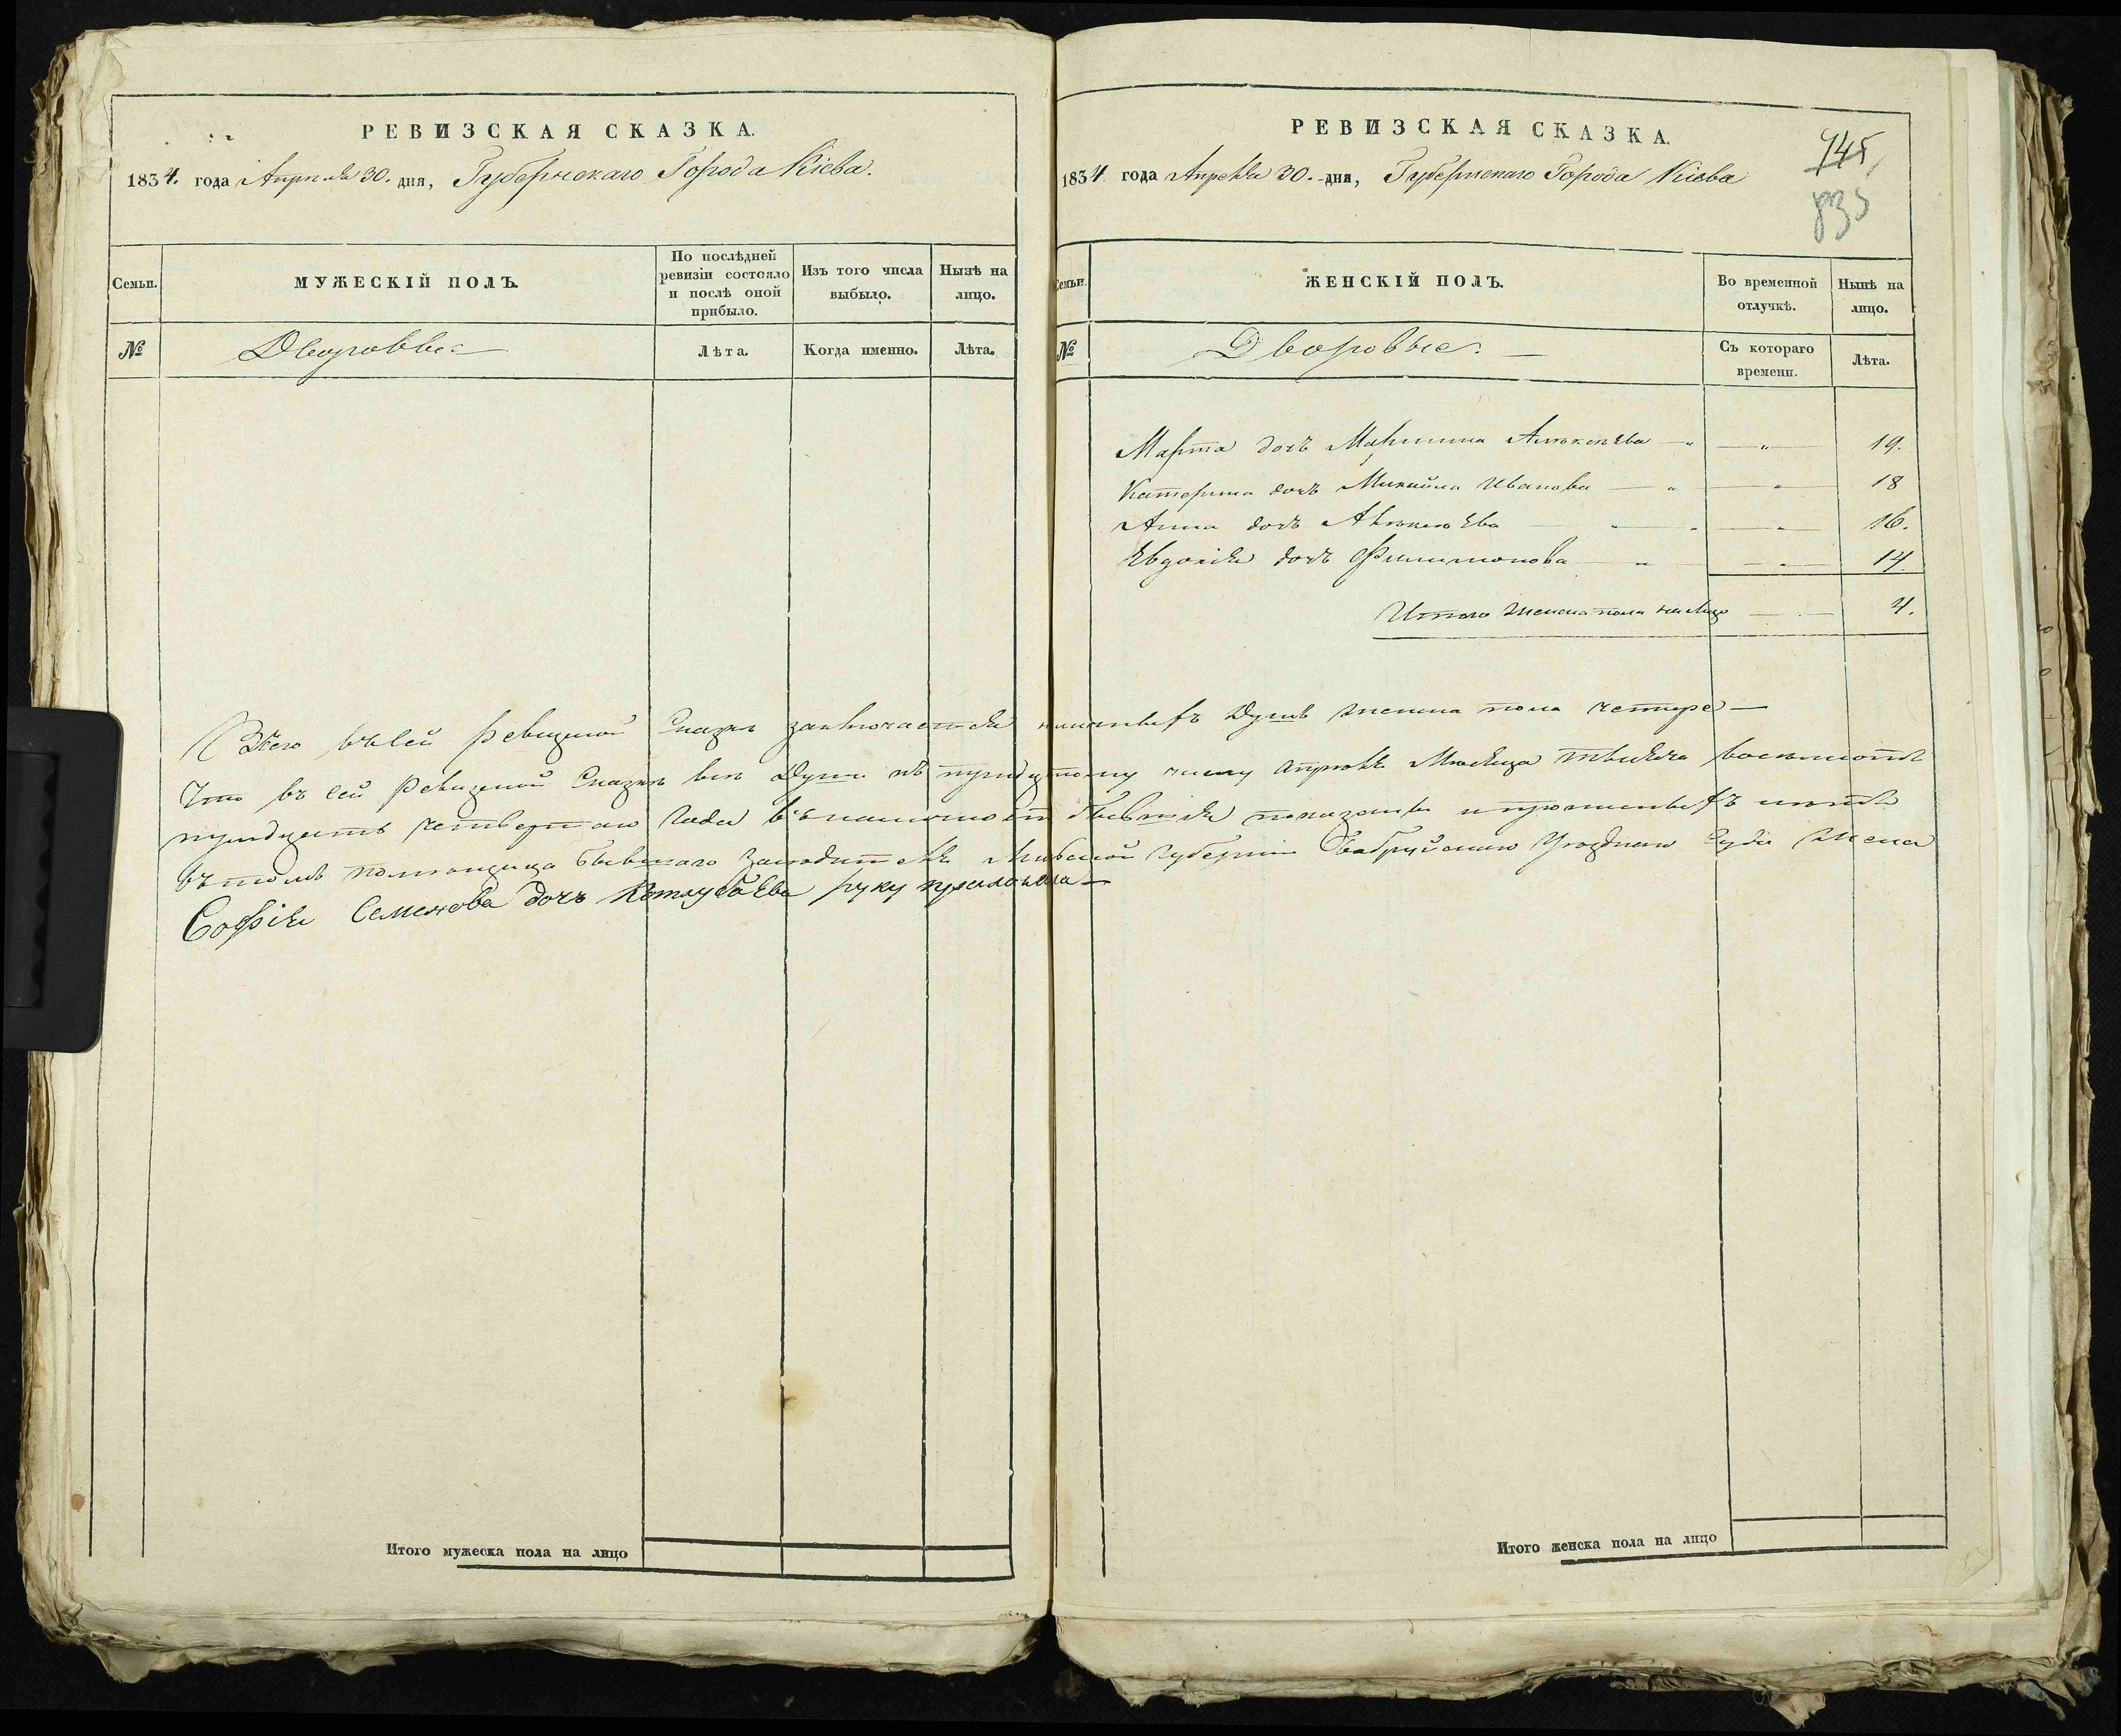 РЕВИЗСКАЯ СКАЗКА.
1834. года Апреля 30. дня, Губернскаго Города Кіева.
Семьи.
МУЖЕСКІЙ ПОЛЪ.
По послѣдней ревизіи состояло и послѣ оной прибыло.
Изъ того числа выбыло.
Нынѣ на лицо.
№
Дворовые
Лѣта.
Когда именно.
Лѣта.
Итого мужеска пола на лицо
РЕВИЗСКАЯ СКАЗКА.
1834 года Апреля 30. дня, Губернскаго Города Кіева
945
835
Семьи.
ЖЕНСКІЙ ПОЛЪ.
Во временной отлучкѣ.
Нынѣ на лицо.
№
Дворовые.
Съ котораго времени.
Лѣта.
Марта дочъ 19.
Катерина дочъ Михайла Иванова 18
Анна дочъ 16.
Евдокія дочъ Филимонова 14
Итого женска пола налицо 4.
Всего въ сей Ревизской Сказке заключается наличныхъ Душъ женска пола четыре
Что въ сей Ревизской Сказке все Души къ тридцатому числу апреля Месяца тысяча восемьсотъ
тридцать четвертаго Года въ наличности показаны и прописныхъ нетъ
въ томъ помещица бывшаго Заседателя Минской Губерніи Бобруйскаго Уезднаго Суда Жена
Софія Семенова дочъ Котлубаева руку приложила
Итого женска пола на лицо